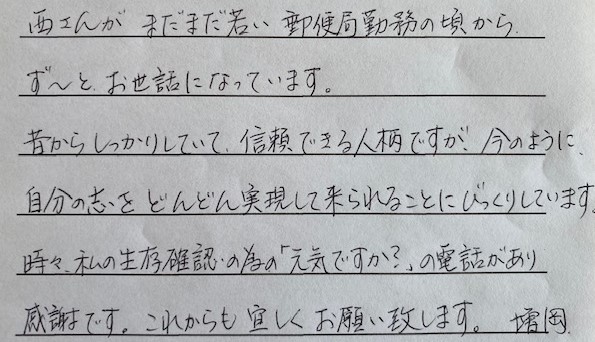 西さんが まだまだ若い 郵便局勤務の頃から、
ず〜と、お世話になっています。
昔からしっかりしていて、信頼できる人柄ですが、今のように、
自分の志をどんどん実現して来られることにびっくりしています。
時々、私の生存確認の為の「元気ですか?」の電話があり
感謝です。これからも宜しくお願い致します。 増岡